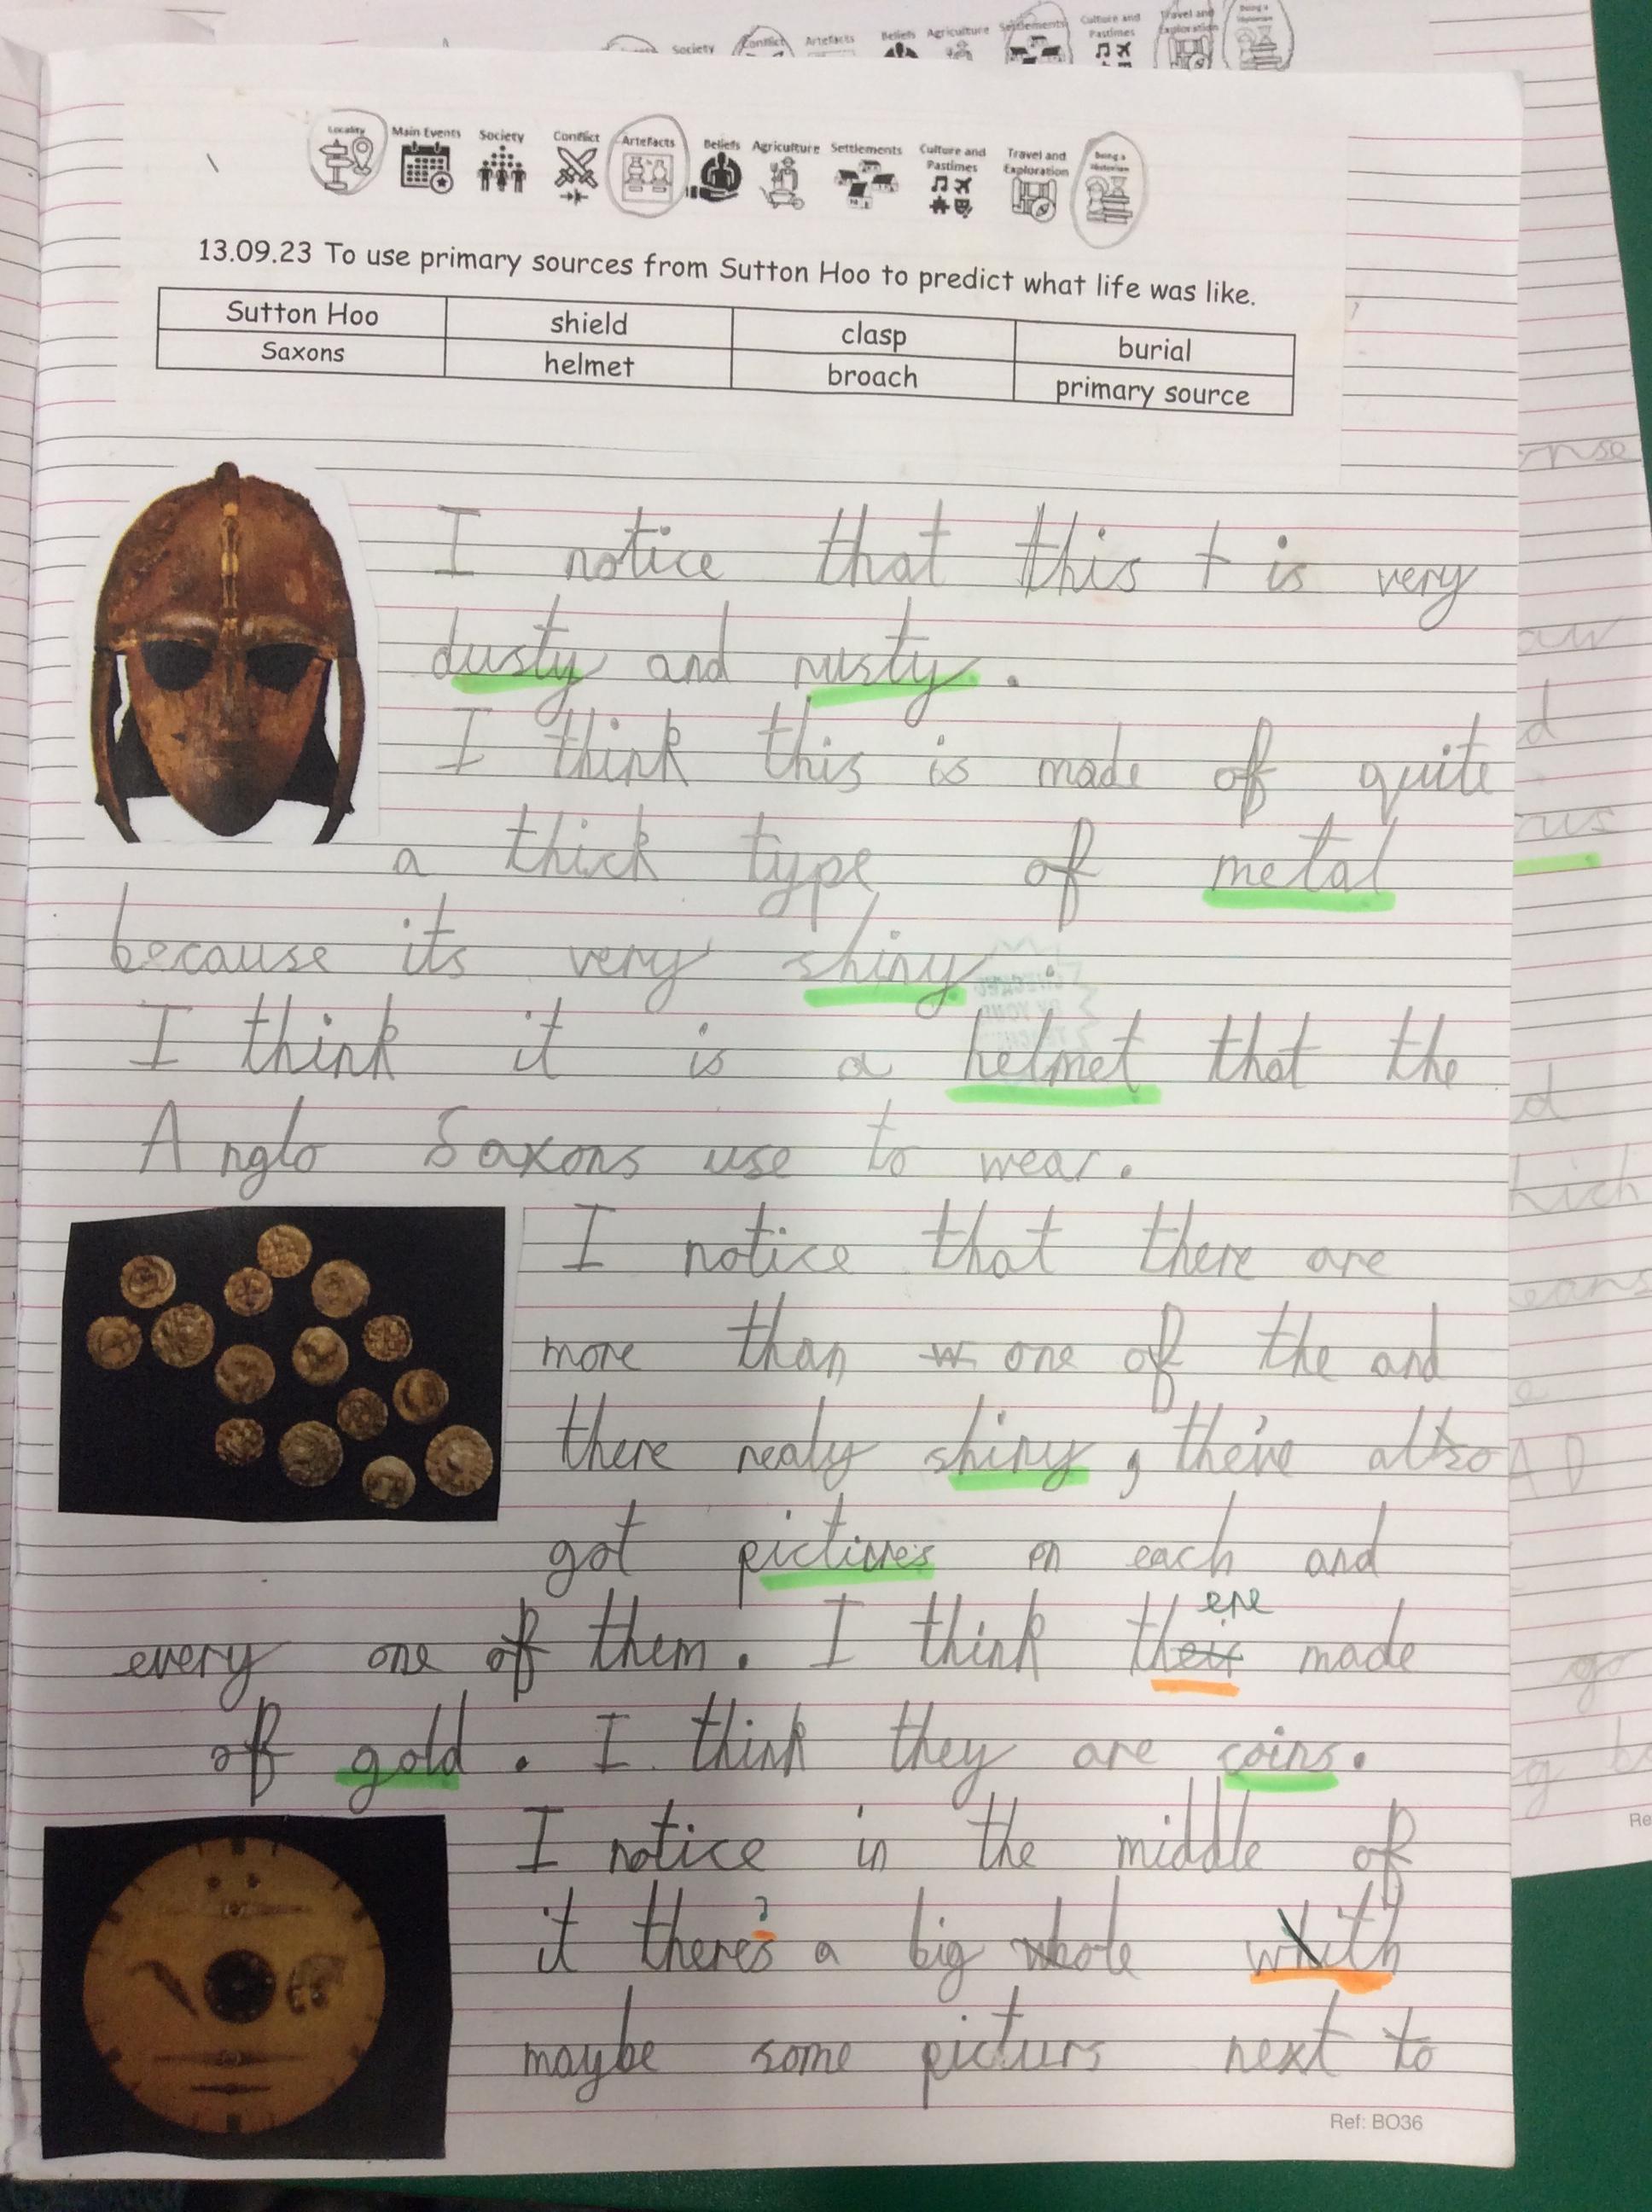 Society Conflict Artefacts Beliefs Agriculture Settlements Culture and Pastimes Travel and Exploration Being a Historian
Locality Main Events Society Conflict Artefacts Beliefs Agriculture Settlements Culture and Pastimes Travel and Exploration Being a Historian
13.09.23 To use primary sources from Sutton Hoo to predict what life was like.
Sutton Hoo shield clasp burial
Saxons helmet broach primary source
I notice that this t is very
dusty and rusty.
I think this is made of quite
a thick type of metal
because its very shiny.
I think it is a helmet that the
Anglo Saxons use to wear.
I notice that there are
more than w one of the and
there realy shiny, the've also
got pictures on each and
ere
every one of them. I think their made
of gold. I think they are coins.
I notice in the middle of
it there's a big whole with
maybe some picturs next to
Ref: BO36